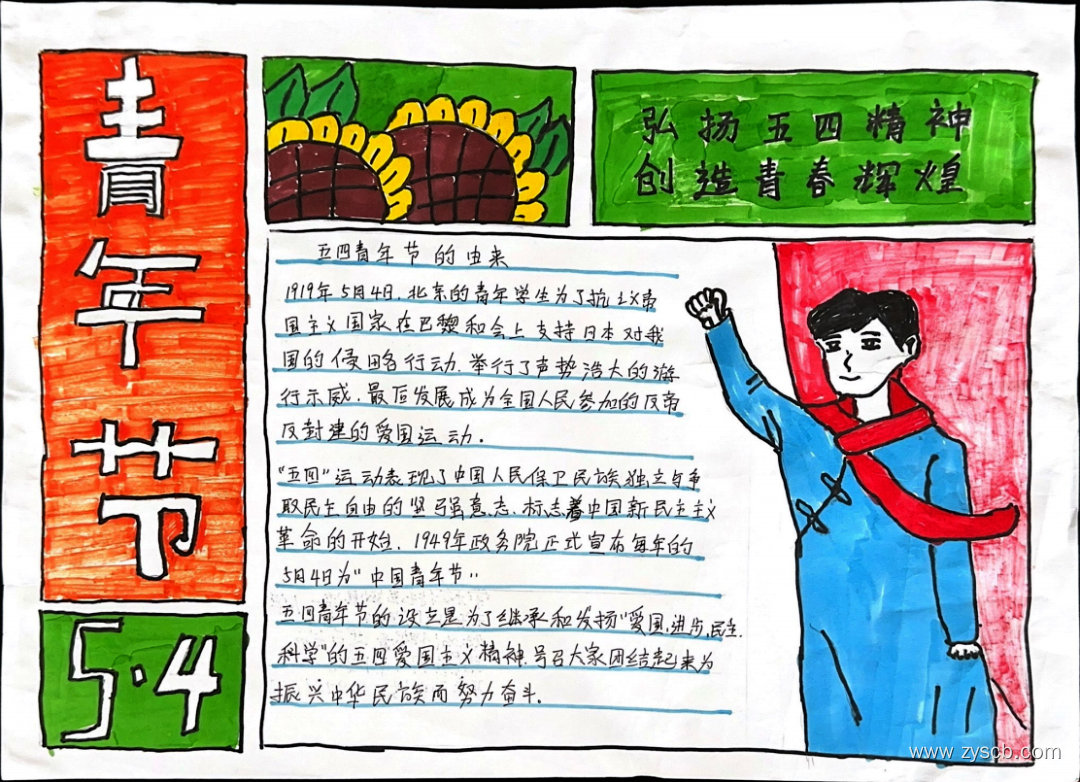 青年节
5·4
弘扬五四精神
创造青春辉煌
五四青年节的由来
1919年5月4日,北京的青年学生为了抗议帝
国主义国家在巴黎和会上支持日本对我
国的侵略行动,举行了声势浩大的游
行示威,最后发展成为全国人民参加的反帝
反封建的爱国运动。
"五四"运动表现了中国人民保卫民族独立与争
取民主自由的坚强意志,标志着中国新民主主义
革命的开始,1949年政务院正式宣布每年的
5月4日为"中国青年节"
五四青年节的设立是为了继承和发扬"爱国,进步,民主,
科学"的五四爱国主义精神,号召大家团结起来为
振兴中华民族而努力奋斗。
www.zyscb.com